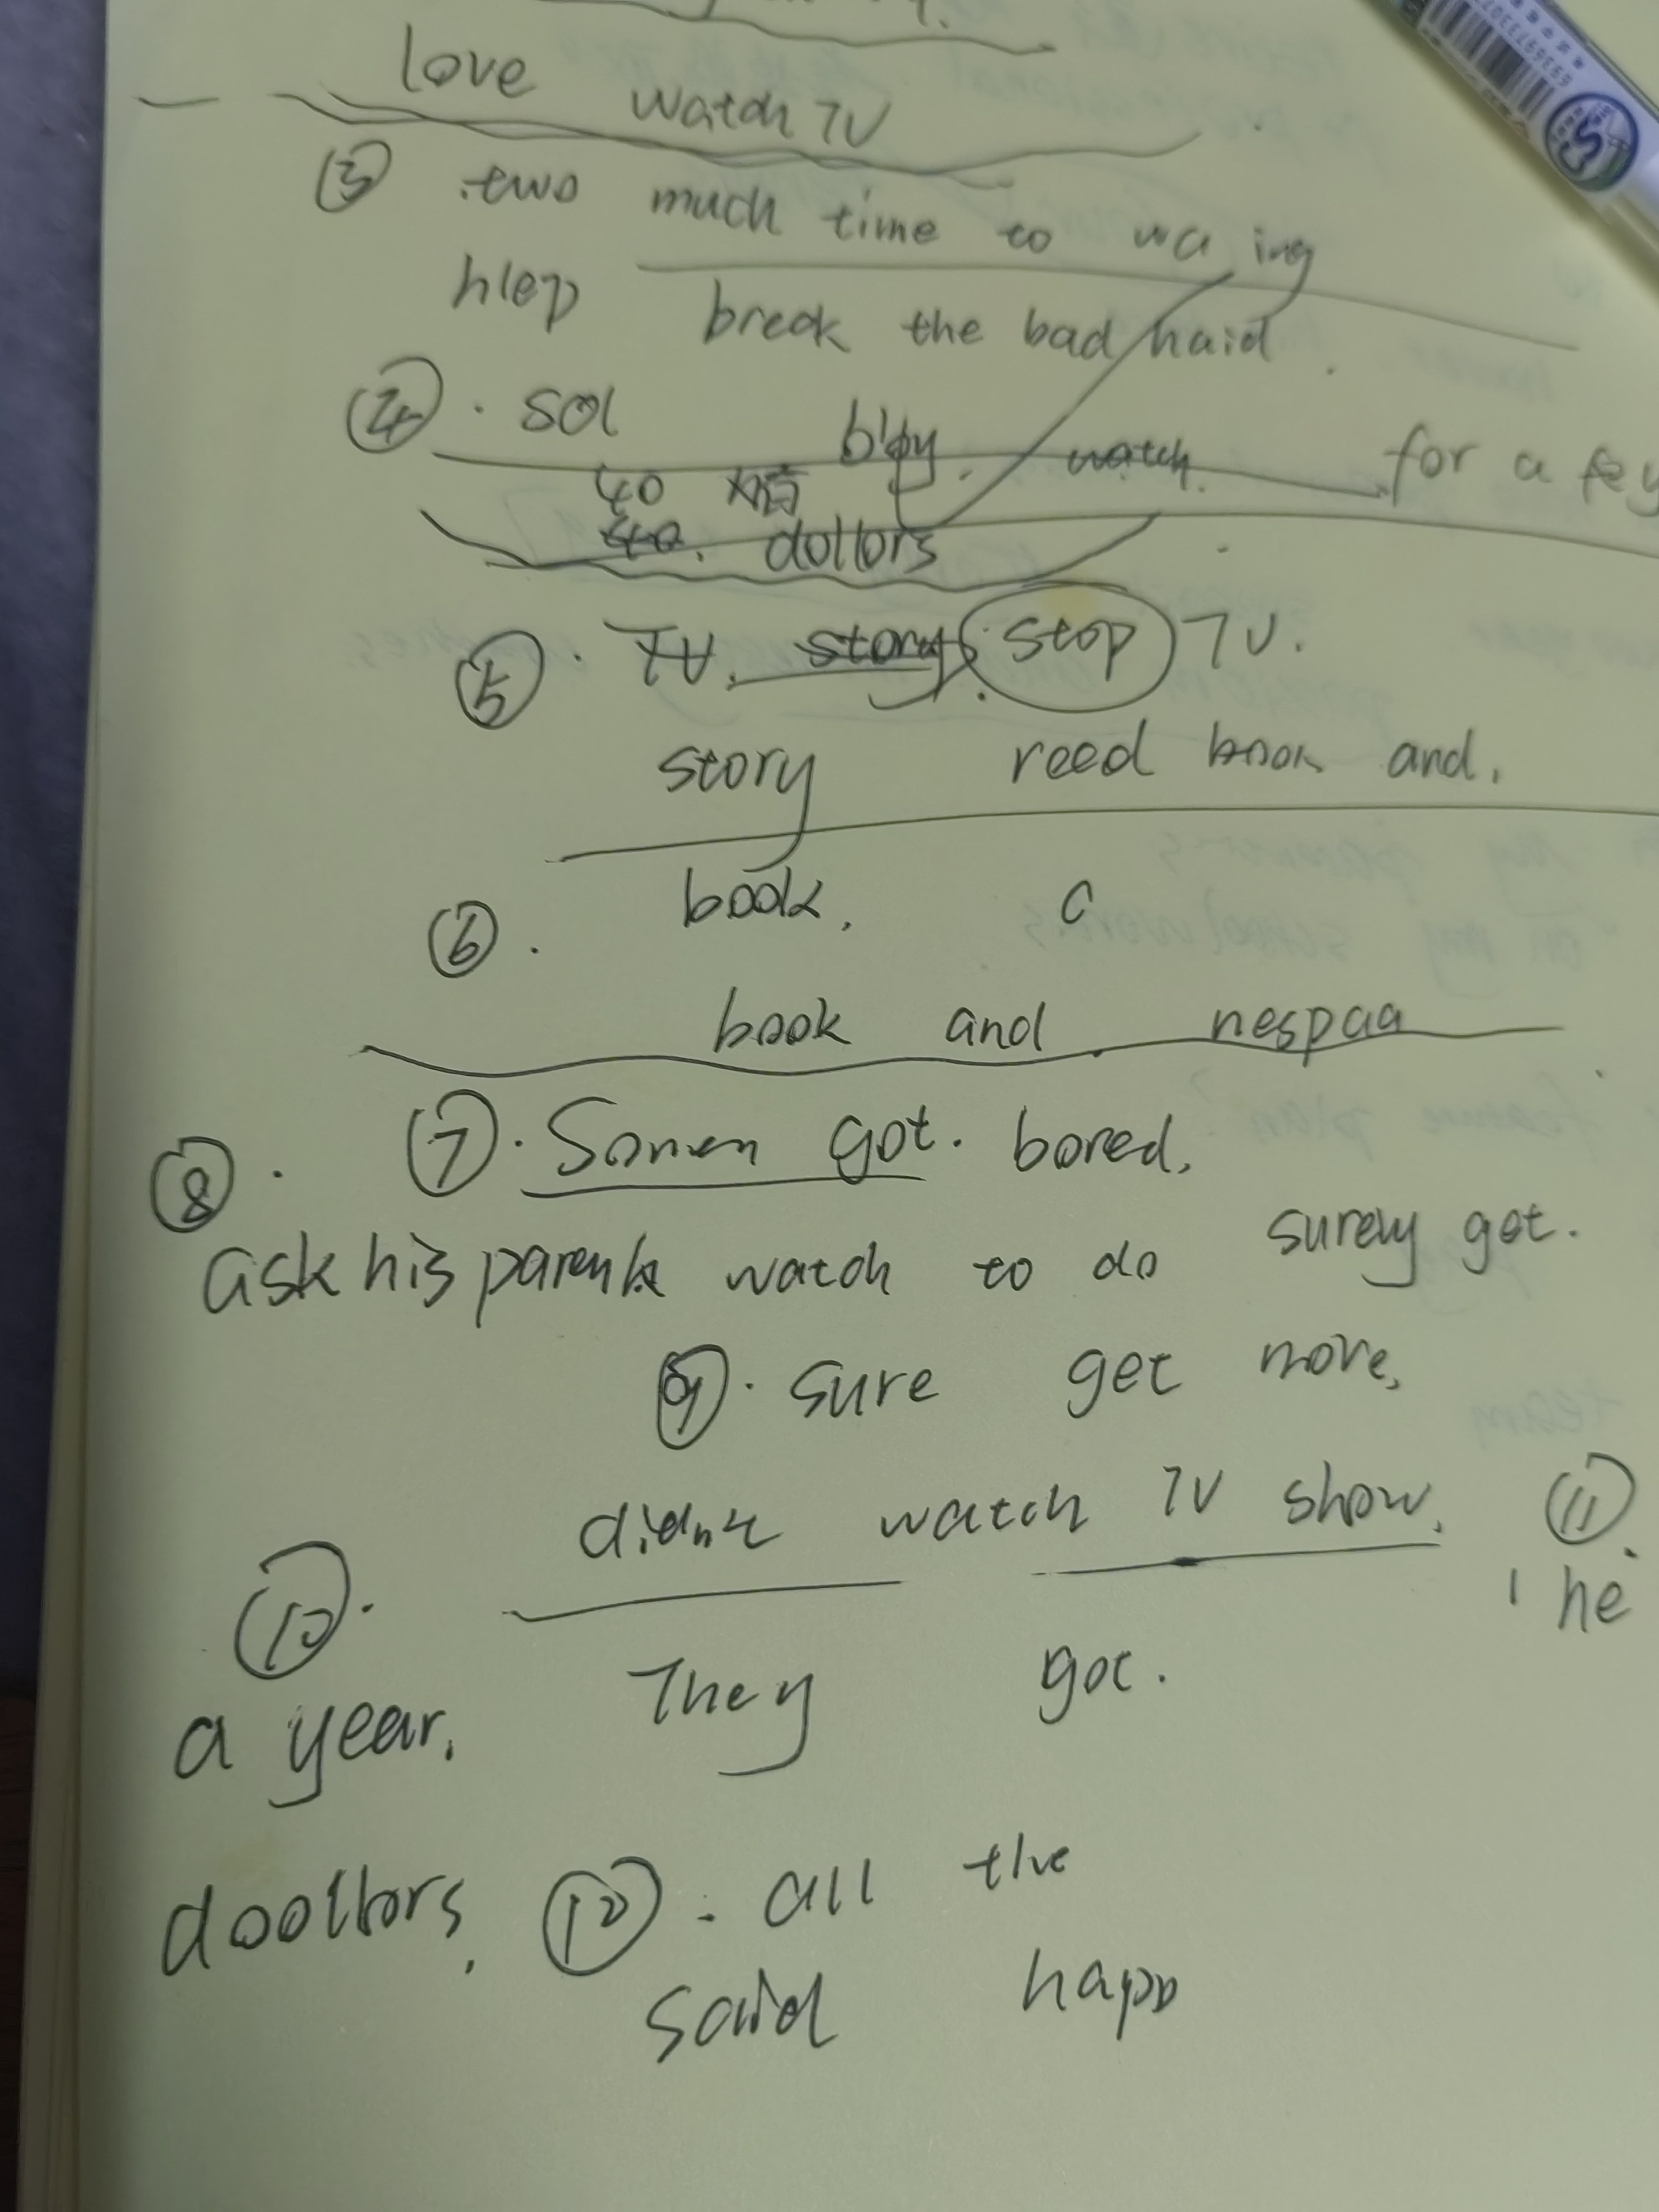 love watch TV
③ .two much time to wa ing
hlep break the bad haid.
④ . sol
for a fey
40
dollors
⑤ . TV. story stop TV.
story reed book and.
⑥ . book. a
book and nespaa
⑦ . Somen got. bored.
⑧ .
ask his parents watch to do surely get.
⑨ . sure get more.
didnt watch TV show. ⑪.
⑩ . he
a year. They got.
doollors. ⑫ . all the
said happ